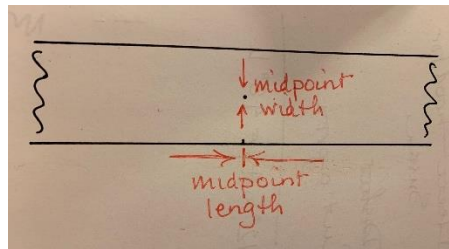 midpoint
width
midpoint
length